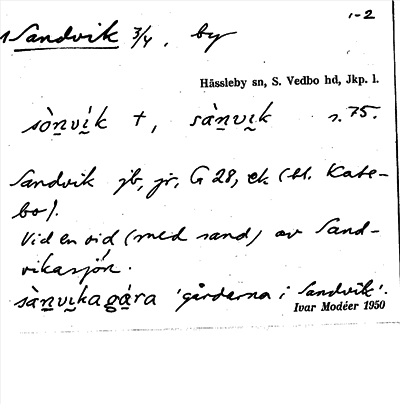 1-2
1 Sandvik 3/4, by
Hässleby sn, S. Vedbo hd, Jkp. l.
sòn̲vi̮k †, sàn̲vi̮k s. 75.
Sandvik jb, jr, G 28, ek (bl. Kate-
bo).
Vid en vid (med sand) av Sand-
vikasjön.
sàn̲vi̮kagá̲ra 'gårderna i Sandvik'.
Ivar Modéer 1950